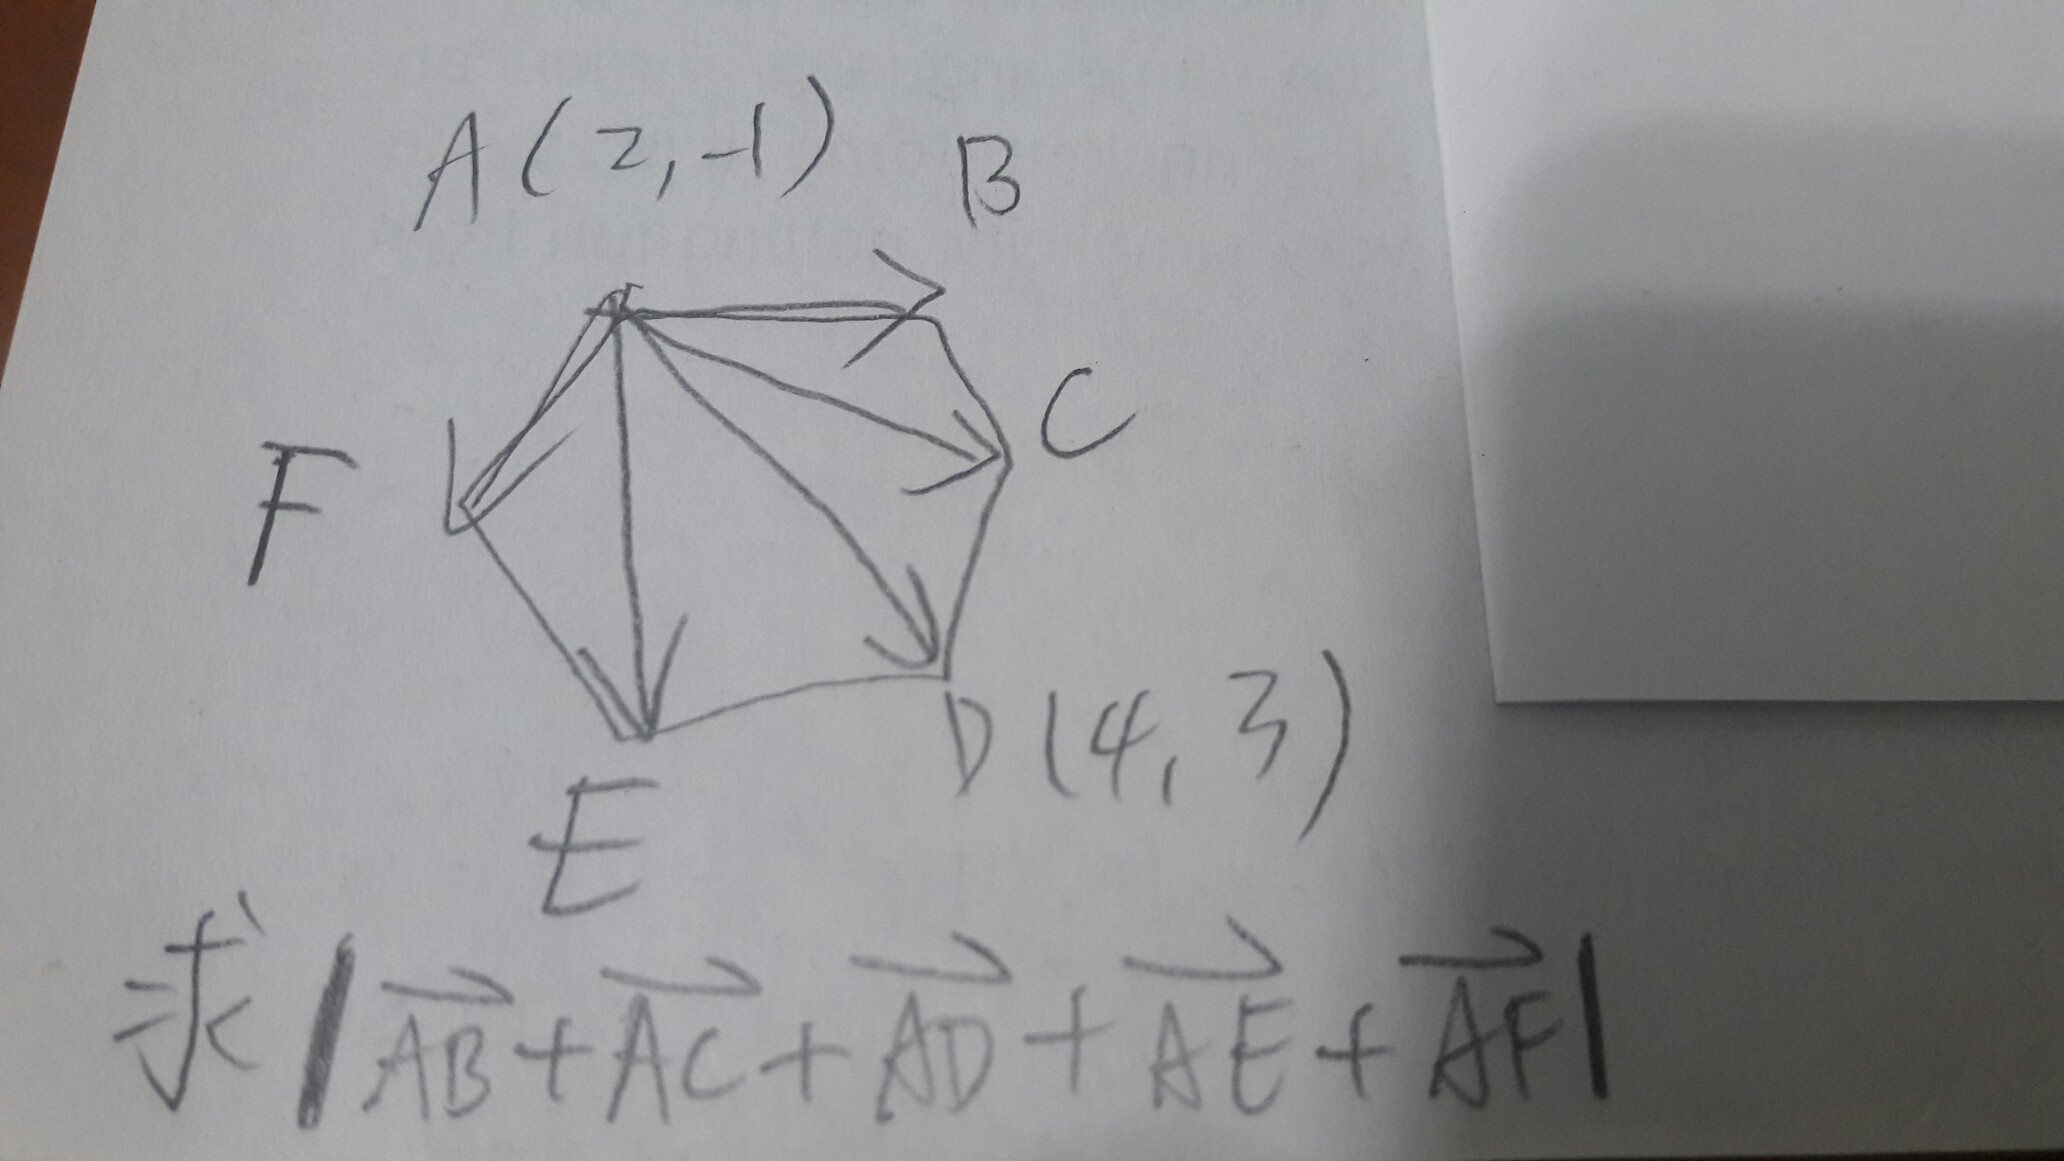 A(2,-1) B
C
F
D(4,3)
E
求|AB+AC+AD+AE+AF|